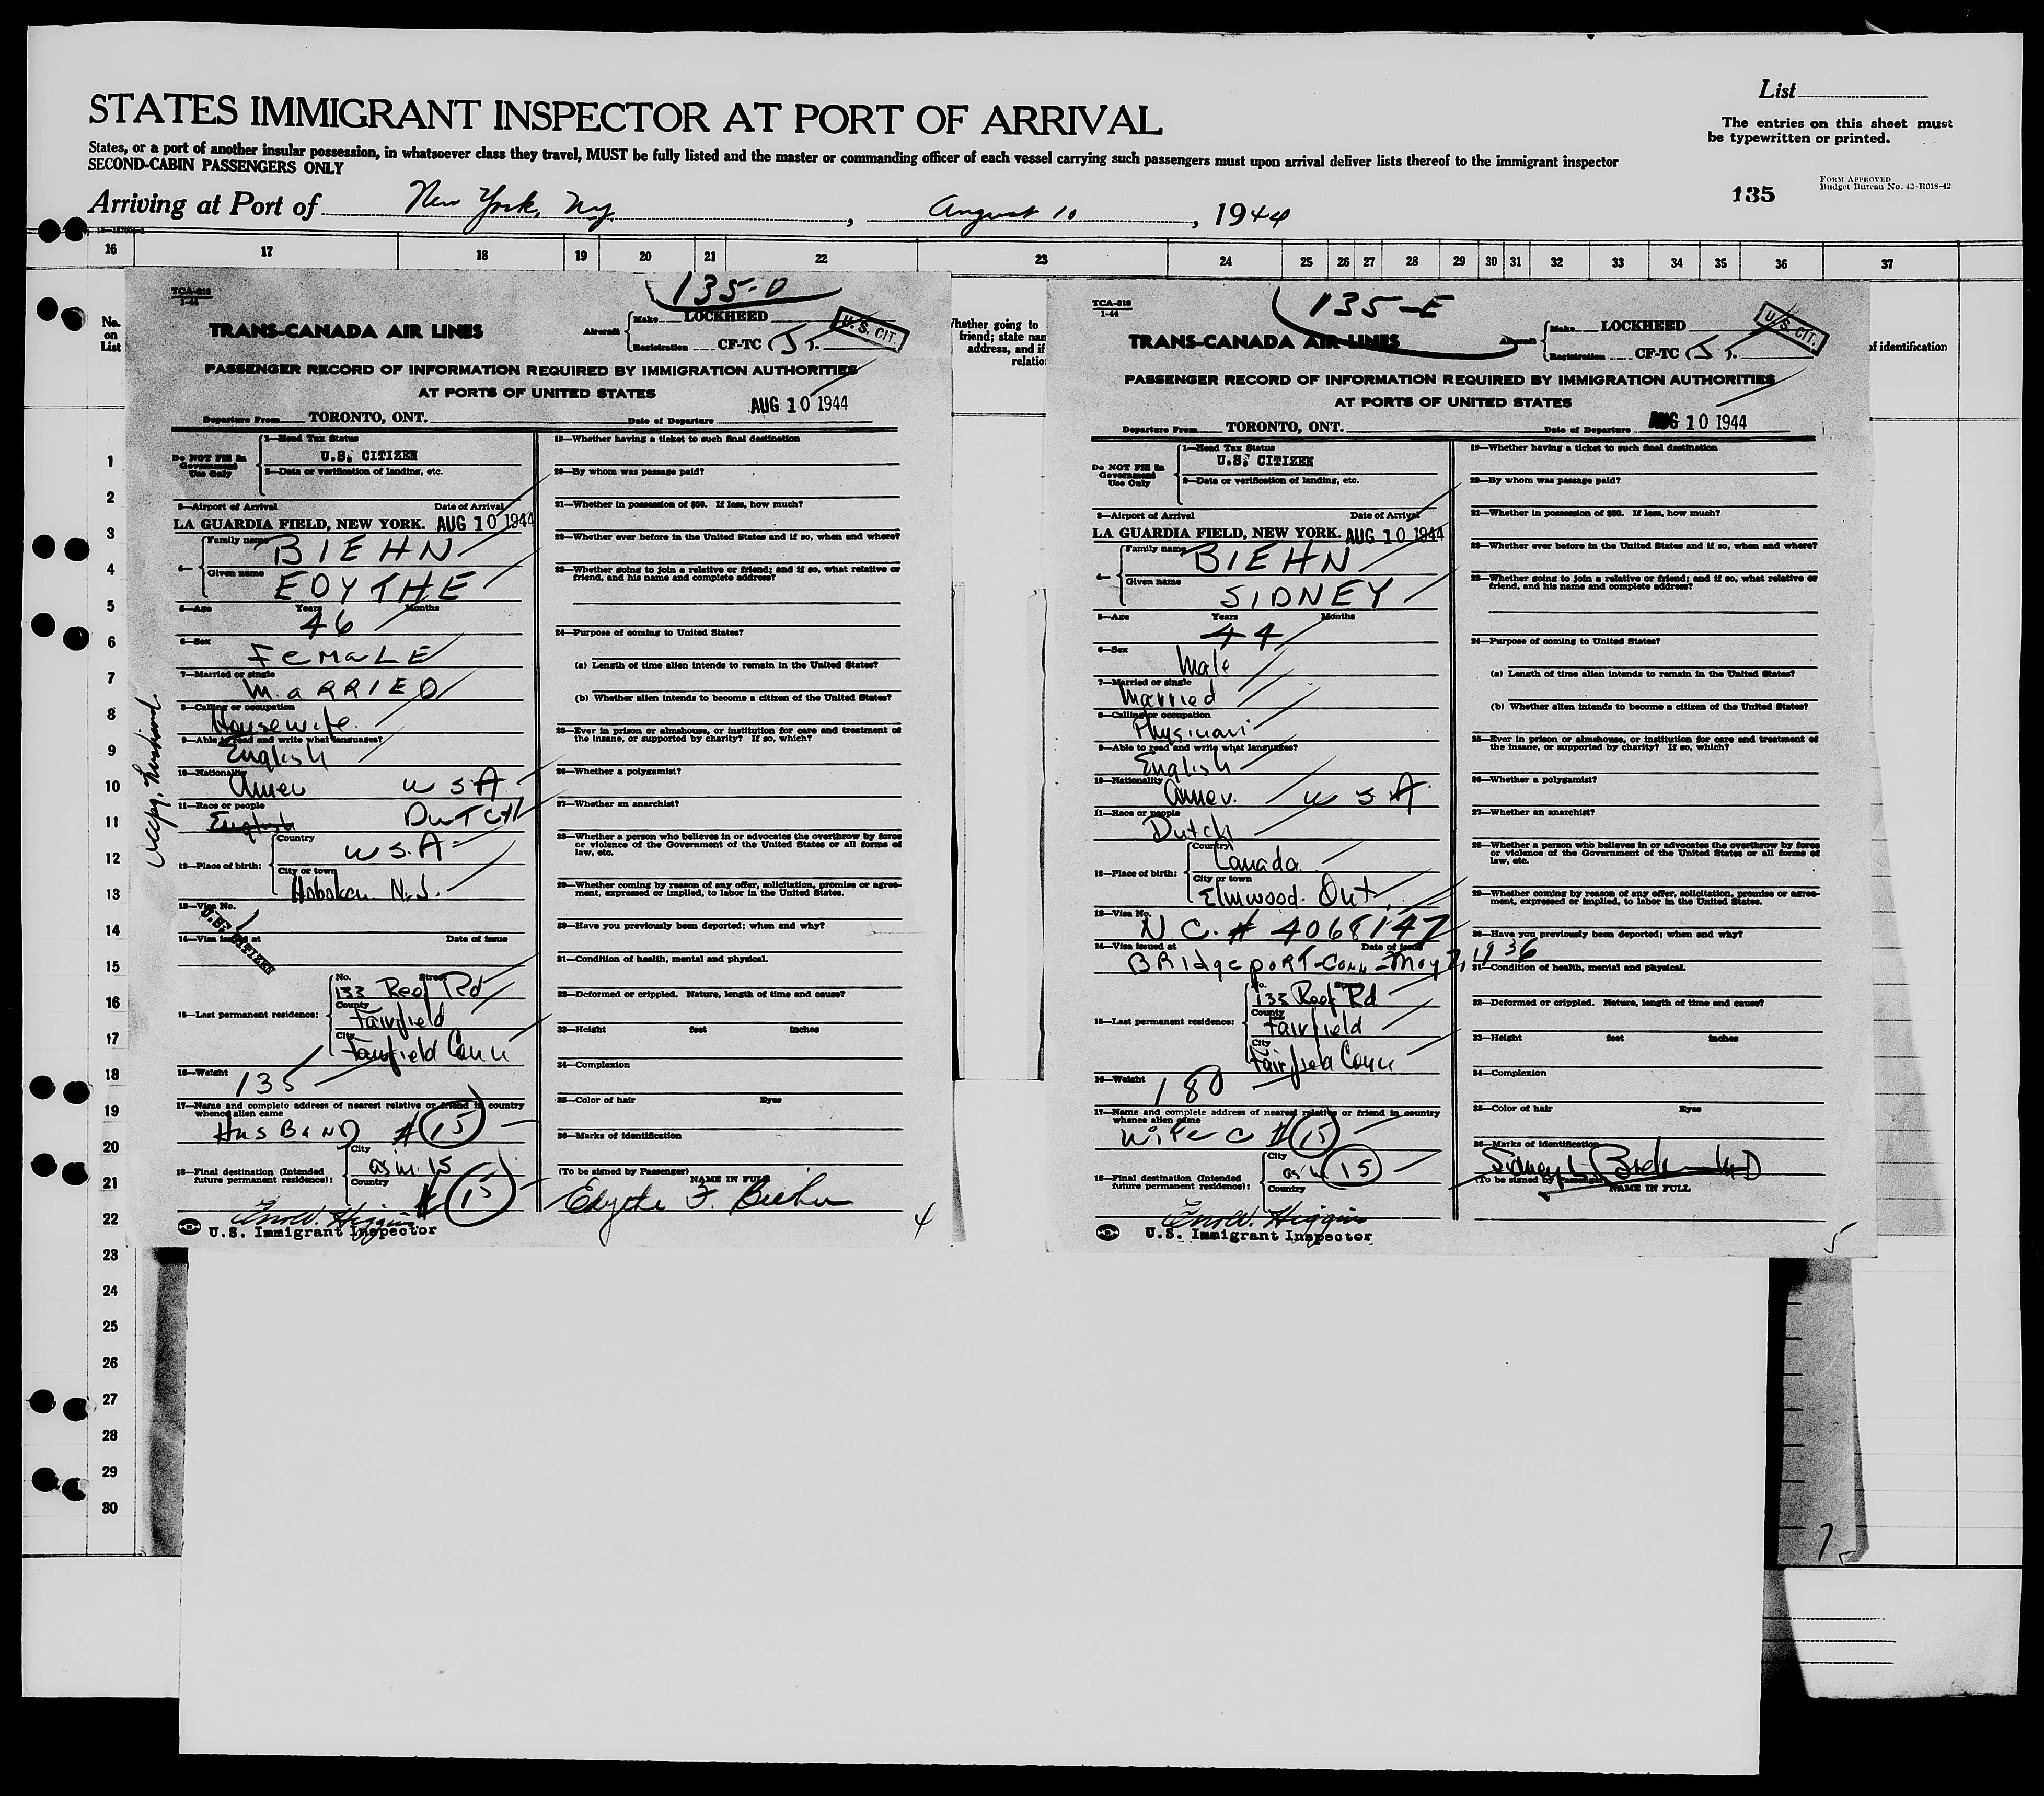 STATES IMMIGRANT INSPECTOR AT PORT OF ARRIVAL
List
The entries on this sheet must
be typewritten or printed.
States, or a port of another insular possession, in whatsoever class they travel, MUST be fully listed and the master or commanding officer of each vessel carrying such passengers must upon arrival deliver lists thereof to the immigrant inspector
SECOND-CABIN PASSENGERS ONLY
Arriving at Port of New York, Ny., August 10, 1944
135
FORM APPROVED
Budget Bureau No. 43-R018-42
16 17 18 19 20 21 22 23 24 25 26 27 28 29 30 31 32 33 34 35 36 37
No.
on
List
Whether going to
friend; state nam
address, and if
relatio
of identification
1
2
3
4
5
6
7
8
9
10
11
12
13
14
15
16
17
18
19
20
21
22
23
24
25
26
27
28
29
30
135-D
TCA-818
1-44
TRANS-CANADA AIR LINES
Aircraft
Make LOCKHEED
Registration CF-TC
U.S. CIT.
PASSENGER RECORD OF INFORMATION REQUIRED BY IMMIGRATION AUTHORITIES
AT PORTS OF UNITED STATES
Departure From TORONTO, ONT. Date of Departure AUG 10 1944
Do NOT Fill In
Government
Use Only
1—Head Tax Status
U.S. CITIZEN
2—Data or verification of landing, etc.
3—Airport of Arrival Date of Arrival
LA GUARDIA FIELD, NEW YORK. AUG 10 1944
4—
Family name BIEHN
Given name EDYTHE
5—Age Years Months
46
6—Sex
FEMALE
7—Married or single
MARRIED
8—Calling or occupation
Housewife
9—Able to read and write what languages?
English
10—Nationality
Amer USA
11—Race or people
English DUTCH
12—Place of birth:
Country
U.S.A
City or town
Hoboken N.J.
13—Visa No.
U.S. CITIZEN
14—Visa issued at Date of issue
15—Last permanent residence:
No. Street
133 Reef Rd
County
Fairfield
City
Fairfield Conn
16—Weight
135
17—Name and complete address of nearest relative or friend in country
whence alien came
HUSBAND # 15
18—Final destination (Intended
future permanent residence):
City
as in 15
Country
# 15
U.S. Immigrant Inspector
19—Whether having a ticket to such final destination
20—By whom was passage paid?
21—Whether in possession of $50. If less, how much?
22—Whether ever before in the United States and if so, when and where?
23—Whether going to join a relative or friend; and if so, what relative or
friend, and his name and complete address?
24—Purpose of coming to United States?
(a) Length of time alien intends to remain in the United States?
(b) Whether alien intends to become a citizen of the United States?
25—Ever in prison or almshouse, or institution for care and treatment of
the insane, or supported by charity? If so, which?
26—Whether a polygamist?
27—Whether an anarchist?
28—Whether a person who believes in or advocates the overthrow by force
or violence of the Government of the United States or all forms of
law, etc.
29—Whether coming by reason of any offer, solicitation, promise or agree-
ment, expressed or implied, to labor in the United States.
30—Have you previously been deported; when and why?
31—Condition of health, mental and physical.
32—Deformed or crippled. Nature, length of time and cause?
33—Height feet inches
34—Complexion
35—Color of hair Eyes
36—Marks of identification
(To be signed by Passenger)
NAME IN FULL
Edythe F. Biehn
4
135-E
TCA-818
1-44
TRANS-CANADA AIR LINES
Aircraft
Make LOCKHEED
Registration CF-TC
U.S. CIT.
PASSENGER RECORD OF INFORMATION REQUIRED BY IMMIGRATION AUTHORITIES
AT PORTS OF UNITED STATES
Departure From TORONTO, ONT. Date of Departure AUG 10 1944
Do NOT Fill In
Government
Use Only
1—Head Tax Status
U.S. CITIZEN
2—Data or verification of landing, etc.
3—Airport of Arrival Date of Arrival
LA GUARDIA FIELD, NEW YORK. AUG 10 1944
4—
Family name BIEHN
Given name SIDNEY
5—Age Years Months
44
6—Sex
Male
7—Married or single
Married
8—Calling or occupation
Physician
9—Able to read and write what languages?
English
10—Nationality
Amer. USA
11—Race or people
Dutch
12—Place of birth:
Country
Canada
City or town
Elmwood. Ont.
13—Visa No.
N C. # 4068147
14—Visa issued at Date of issue
BRIdgePORT-CONN-May 2, 1936
15—Last permanent residence:
No. Street
133 Reef Rd
County
Fairfield
City
Fairfield Conn
16—Weight
180
17—Name and complete address of nearest relative or friend in country
whence alien came
WIFE # 15
18—Final destination (Intended
future permanent residence):
City
as in 15
Country
U.S. Immigrant Inspector
19—Whether having a ticket to such final destination
20—By whom was passage paid?
21—Whether in possession of $50. If less, how much?
22—Whether ever before in the United States and if so, when and where?
23—Whether going to join a relative or friend; and if so, what relative or
friend, and his name and complete address?
24—Purpose of coming to United States?
(a) Length of time alien intends to remain in the United States?
(b) Whether alien intends to become a citizen of the United States?
25—Ever in prison or almshouse, or institution for care and treatment of
the insane, or supported by charity? If so, which?
26—Whether a polygamist?
27—Whether an anarchist?
28—Whether a person who believes in or advocates the overthrow by force
or violence of the Government of the United States or all forms of
law, etc.
29—Whether coming by reason of any offer, solicitation, promise or agree-
ment, expressed or implied, to labor in the United States.
30—Have you previously been deported; when and why?
31—Condition of health, mental and physical.
32—Deformed or crippled. Nature, length of time and cause?
33—Height feet inches
34—Complexion
35—Color of hair Eyes
36—Marks of identification
Sidney L Biehn MD
(To be signed by Passenger)
NAME IN FULL
5
7